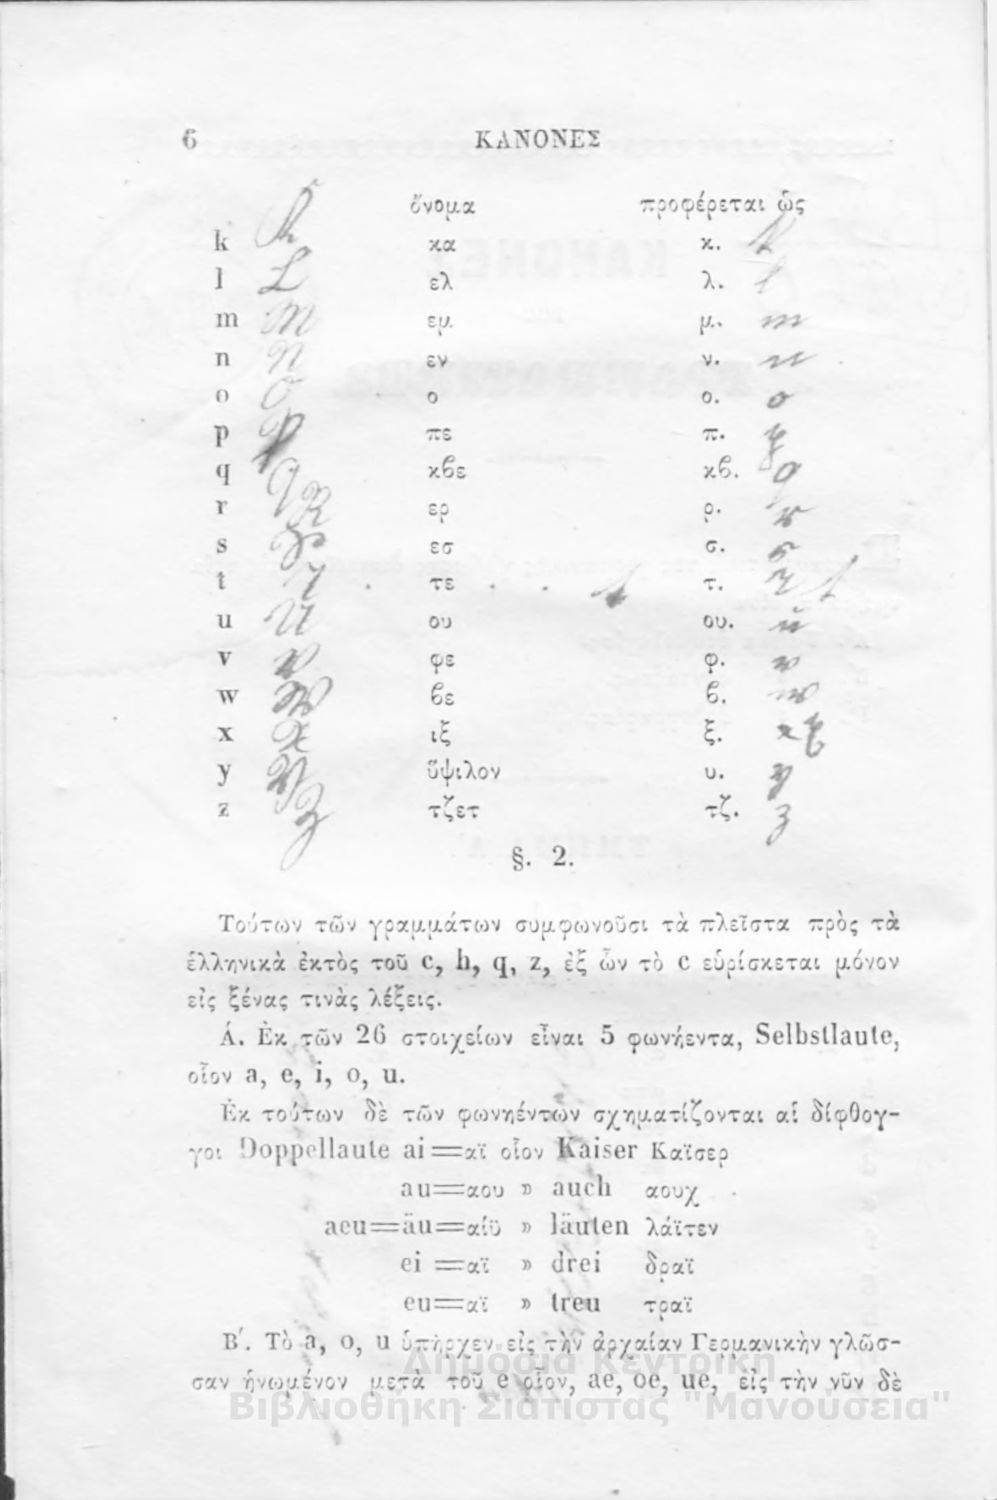 6 ΚΑΝΟΝΕΣ
ὄνομα προφέρεται ὡς
k K κα κ. k
l L ελ λ. l
m M εμ μ. m
n N εν ν. n
o O ο ο. o
p P πε π. p
q Q κϐε κϐ. q
r R ερ ρ. r
s S εσ σ. s
t T τε t τ. t
u U ου ου. u
v V φε φ. v
w W ϐε ϐ. w
x X ιξ ξ. x
y Y ὕψιλον υ. y
z Z τζετ τζ. z
§. 2.
Τούτων τῶν γραμμάτων συμφωνοῦσι τὰ πλεῖστα πρὸς τὰ
ἑλληνικὰ ἐκτὸς τοῦ c, h, q, z, ἐξ ὧν τὸ c εὑρίσκεται μόνον
εἰς ξένας τινὰς λέξεις.
Ά. Ἐκ τῶν 26 στοιχείων εἶναι 5 φωνήεντα, Selbstlaute,
οἷον a, e, i, o, u.
Ἐκ τούτων δὲ τῶν φωνηέντων σχηματίζονται αἱ δίφθογ-
γοι Doppellaute ai=αϊ οἷον Kaiser Καϊσερ
au=αου » auch αουχ
aeu=äu=αίϋ » läuten λάϊτεν
ei =αϊ » drei δραϊ
eu=αϊ » treu τραϊ
Β΄. Τὸ a, o, u ὑπῆρχεν εἰς τὴν ἀρχαίαν Γερμανικὴν γλῶσ-
σαν ἡνωμένον μετὰ τοῦ e οἷον, ae, oe, ue, εἰς τὴν νῦν δὲ
Δημόσια Κεντρική
Βιβλιοθήκη Σιάτιστας "Μανούσεια"